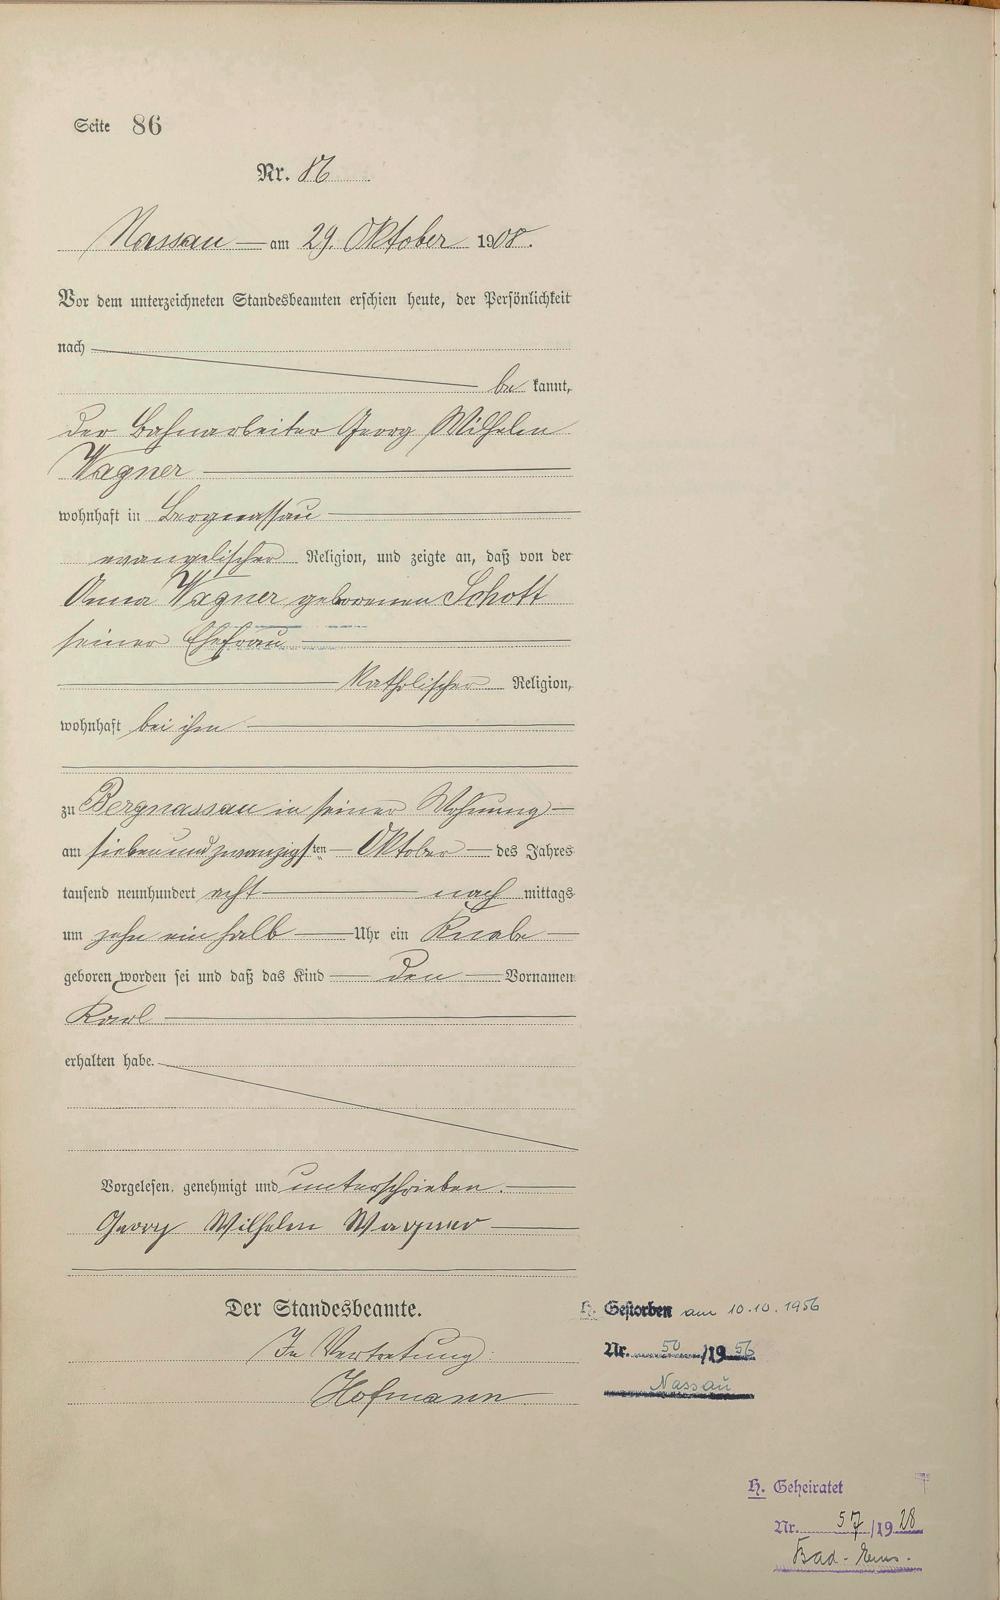 Seite 86
Nr. 86
Nassau am 29. Oktober 1908.
Vor dem unterzeichneten Standesbeamten erschien heute, der Persönlichkeit
nach
bekannt,
der Bahnarbeiter Georg Wilhelm
Wagner
wohnhaft in Bergnassau
evangelischer Religion, und zeigte an, daß von der
Anna Wagner geborenen Schott
seiner Ehefrau
katholischer Religion,
wohnhaft bei ihm
zu Bergnassau in seiner Wohnung
am siebenundzwanzigsten Oktober des Jahres
tausend neunhundert acht nachmittags
um zehn einhalb Uhr ein Knabe
geboren worden sei und daß das Kind den Vornamen
Karl
erhalten habe.
Vorgelesen, genehmigt und unterschrieben.
Georg Wilhelm Wagner
Der Standesbeamte.
In Vertretung:
Hofmann
H. Gestorben am 10.10.1956
Nr. 50/1956
Nassau
H. Geheiratet
Nr. 57/1928
Bad-Ems.